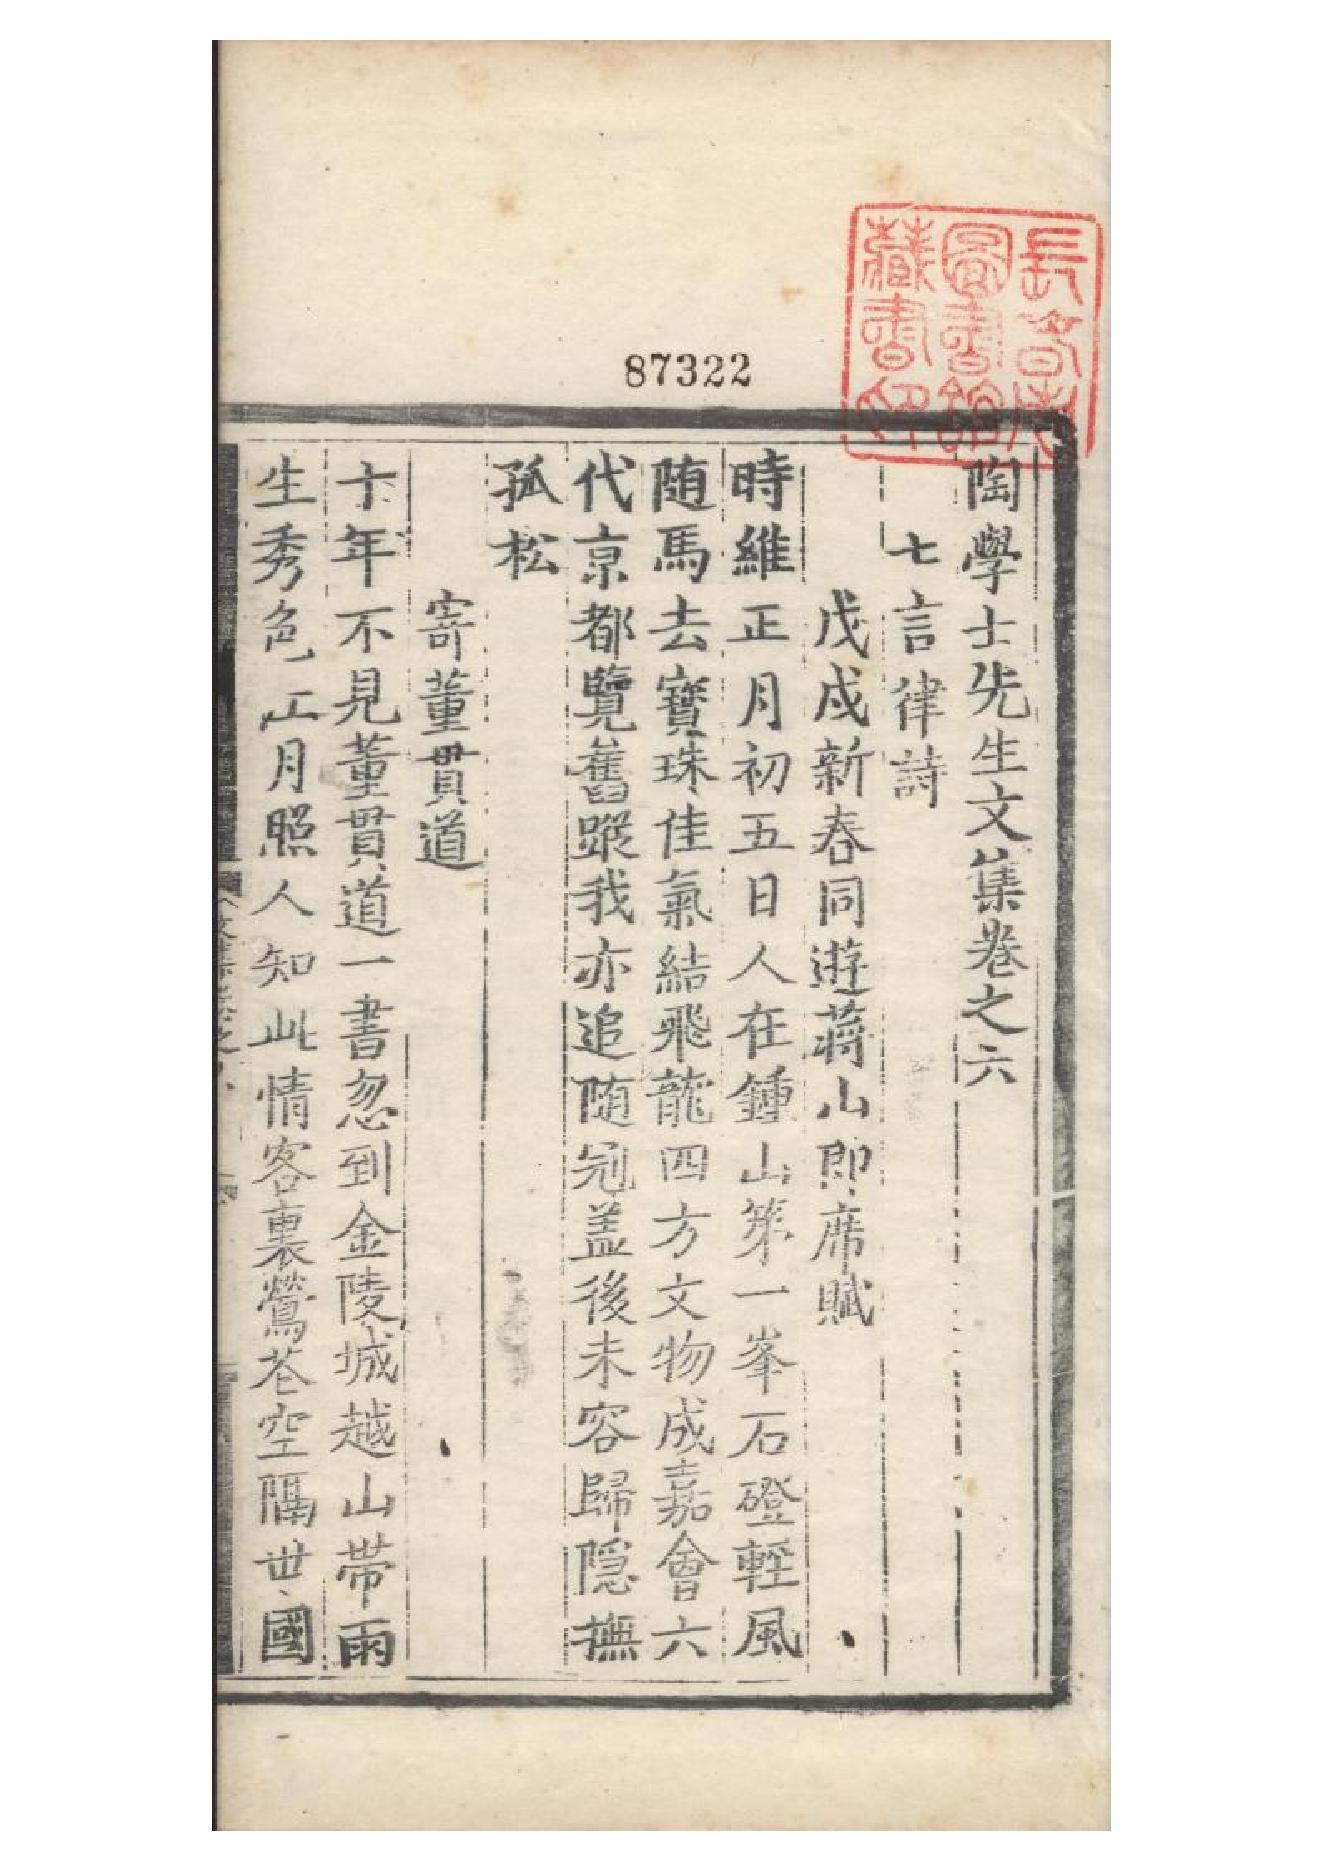 長春市
圖書館
藏書印
87322
陶學士先生文集卷之六
七言律詩
戊戌新春同遊蔣山即席賦
時維正月初五日人在鍾山第一峯石磴輕風
随馬去寶珠佳氣結飛龍四方文物成嘉會六
代京都覽舊蹤我亦追随冠盖後未容歸隠撫
孤松
寄董貫道
十年不見董貫道一書忽到金陵城越山帶雨
生秀色江月照人知此情客裏鶯花空隔世國